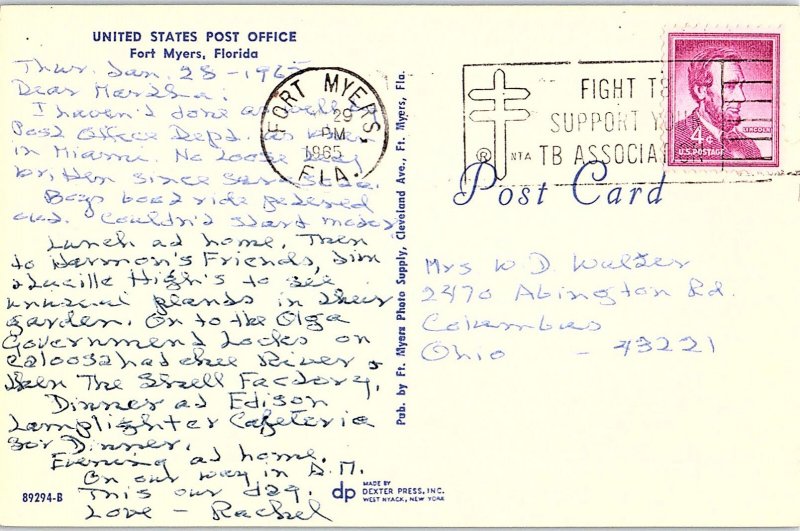 UNITED STATES POST OFFICE
Fort Myers, Florida
Thur. Jan. 28 - 1965
Dear Marsha:
I haven't done as well by
Post Office Dept. as
in Miami. No loose
since Sarasota.
Boys boat ride petered
out. Couldn't start motor.
Lunch at home. Then
to Harmon's Friends, Jim
& Lucille High's to see
unusual plants in their
garden. On to the Olga
Government Locks on
Caloosahatchee River &
then The Shell Factory.
Dinner at Edison
Lamplighter Cafeteria
for Dinner.
Evening at home.
On our way in A.M.
This our day.
Love - Rachel
89294-B
Pub. by Ft. Myers Photo Supply, Cleveland Ave., Ft. Myers, Fla.
dp MADE BY
DEXTER PRESS, INC.
WEST NYACK, NEW YORK
FORT MYERS,
29
PM
1965
FLA.
FIGHT TB
SUPPORT YOUR
TB ASSOCIATION
® NTA
4¢
LINCOLN
U.S. POSTAGE
Post Card
Mrs W. D. Walter
2470 Abington Rd.
Columbus
Ohio - 43221